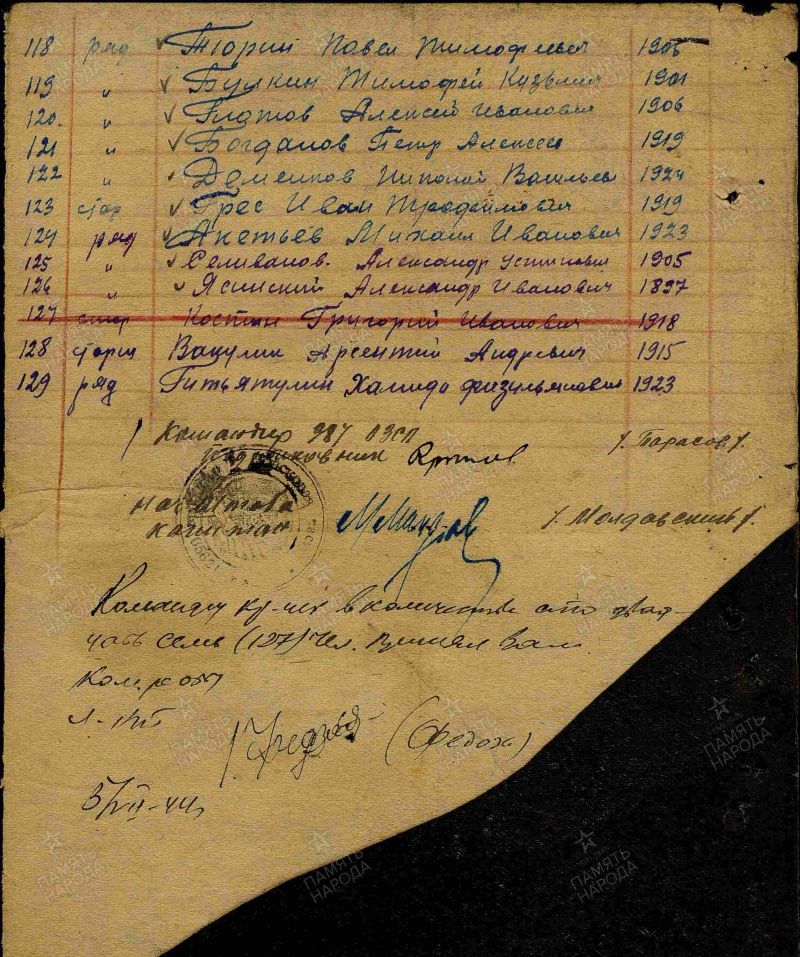 118 ряд Тюрин Павел Тимофеевич 1905
119 " Булкин Тимофей Кузьмич 1901
120. " Платов Алексей Иванович 1906
121 " Богданов Петр Алексеев 1919
122 " Деменков Николай Васильев 1924
123 стар Грес Иван Трофимович 1919
124 ряд Акетьев Михаил Иванович 1923
125 " Селиванов. Александр Устинович 1905
126 " Ясинский Александр Иванович 1897
127 Костин Григорий Иванович 1918
128 Вакулин Арсентий Андревич 1915
129 ряд Хамидо 1923
Командир 987 АЗСП
подполковник /. Тарасов /.
Нач штаба
капитан, /. Молдавский /.
Команду в количестве сто двад-
цать семь (127) чел. принял Вам
Ком. роты
л-нт
(Федох)
5/VII-44
ПАМЯТЬ НАРОДА